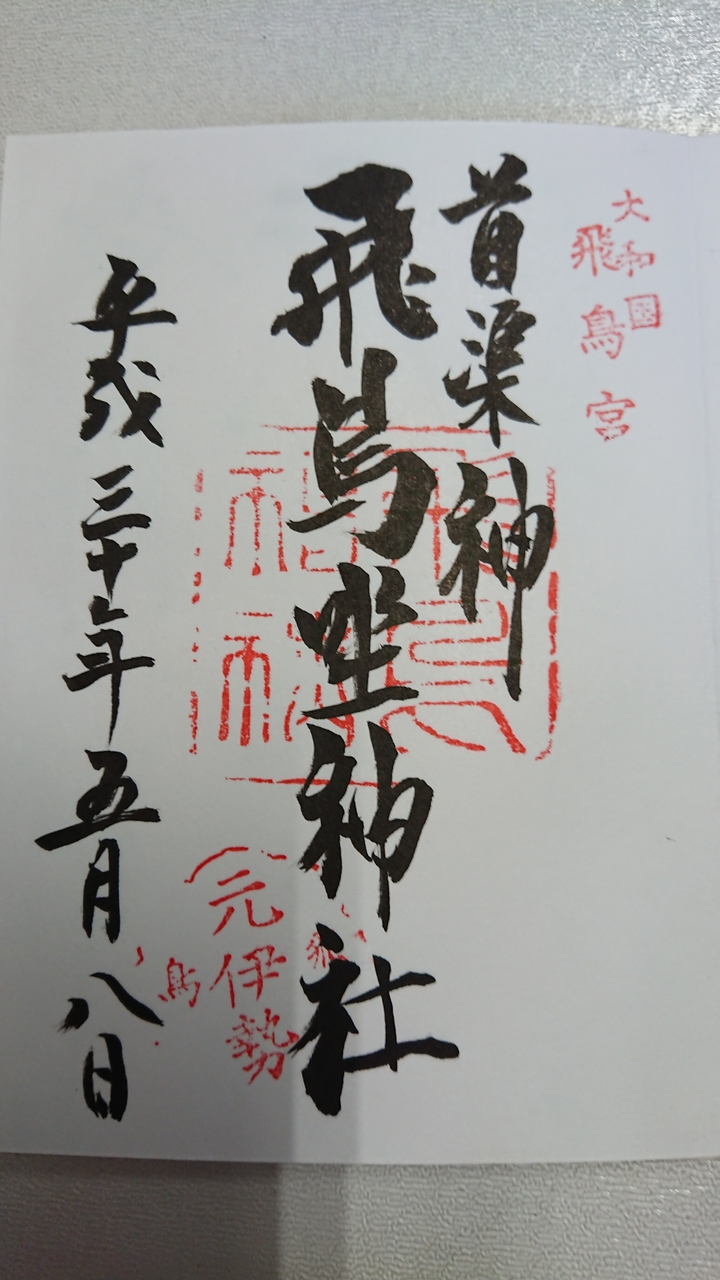 大和國
飛鳥宮
苗渠神
飛鳥坐神社
元伊勢
平成三十年五月八日